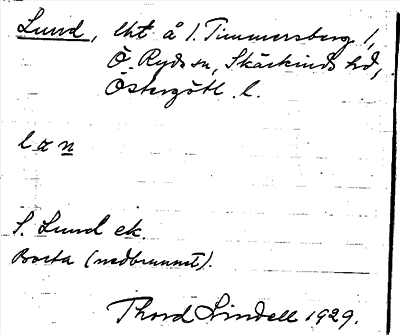 Lund, lht å 1. Timmersberg 1,
Ö. Ryds sn, Skärkinds hd,
Östergötl. l.
l a n
S. Lund ek.
Borta (nedbrunnet).
Thord Lindell 1929.